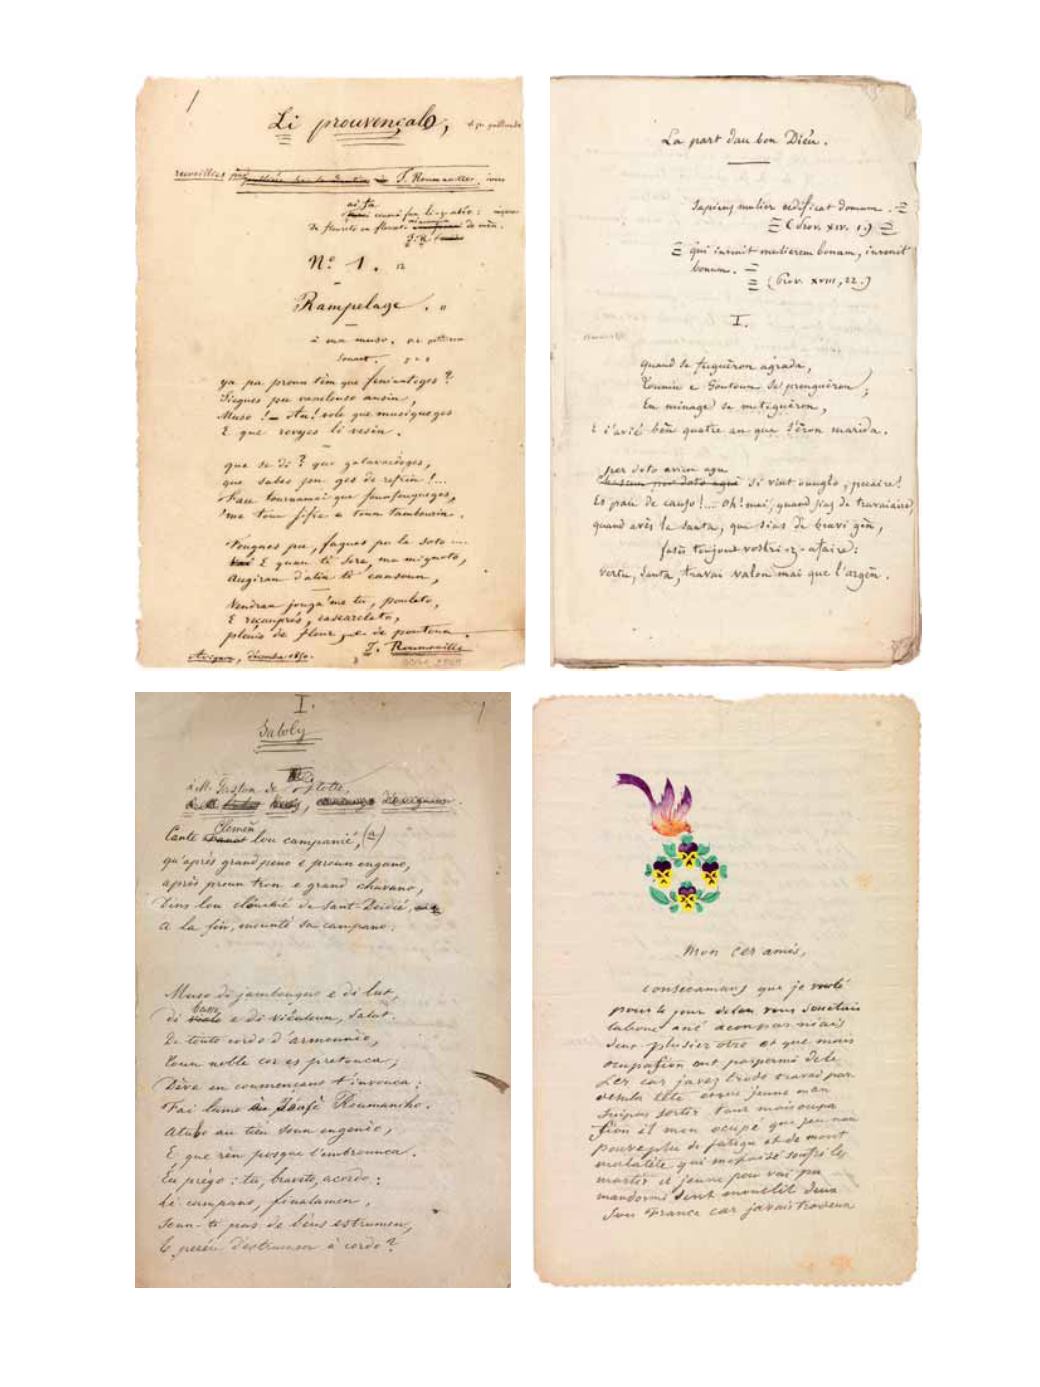 Li prouvençalo,
recueillies J. Roumanilles.
N.º 1.
Rampelage.
à ma muso.
Sounet.
ya pa proun tèm que feinianteges ?
Siegues pu vanelouso ansin,
Muso !— An ! vole que musiqueges
E que roveges li vesin.
que se di ? que galavardeges,
que sabes pu ges de refrin !...
'me toun fifre e toun tambourin.
Vougues pu, fugues pu la soto ...
E quan ti sero, ma mignoto,
Augiran d'atin ti cansoun,
Vendran jouga 'me tu, pouleto,
E reçaupras, cascareleto,
plenis de flour e de poutoun.
Avignoun, décembre 1850. J. Roumanille
La part dau bon Diéu.
Sapiens mulier ædificat domum.
(Prov. XIV. 1.)
qui invenit mulierem bonam, invenit
bonum.
(Prov. XVIII, 22.)
I.
Quand se fuguèron agrada,
Touniu e Goutoun se prenguèron ;
En ménage se meteguèron,
E i'avié bèn quatre an que s'èron marida.
per doto avien agu
Chascun per doto agué si vint ounglo ; pecaire !
Es pau de causo !... Oh ! mai, quand sias de travaiaire,
quand avès la santa, que sias de bravi gèn,
fasès toujour vostri-z-afaire :
Vertu, santa, travai valon mai que l'argèn.
I.
Saboly
à M. Gaston de Flotte,
Clemèn
Cante lou campanié, (a)
qu'après grand peno e proun engano,
après proun tron e grand chavano,
Dins lou clouchié de Sant-Deidié,
A la fin, mounté sa campano.
Muso di jambougno e di lut,
basso
di viôlo e di viéuloun, salut.
De touto cordo d'armounio,
Toun noble cor es pretouca ;
Dève en coumençant t'invouca :
Fai lume au Jóusè Roumaniho.
Atubo au tiéu soun engenio,
E que rèn posque l'embrounca.
Eu prègo : tu, braveto, acordo :
li campano, finalamen,
soun-ti pas de bèus estrumen,
E perèu d'estrumen à cordo ?
Mon cer amis,
Consecamans que je voulé
pour le jour delan vous souetais
la boné ané aconpas néais
deus plusier otre et que mais
ocupasion ont paspermi dele
ler car javez trodo travai par
jeune man
sortir tour mais ocupa
sion il mon ocupé que jeu nan
pouveplu de fatigu et de mont
malatéte qui mefaisé soufri le
martir et jeune pou vai pu
mandormi
Sou France car javais trouveux